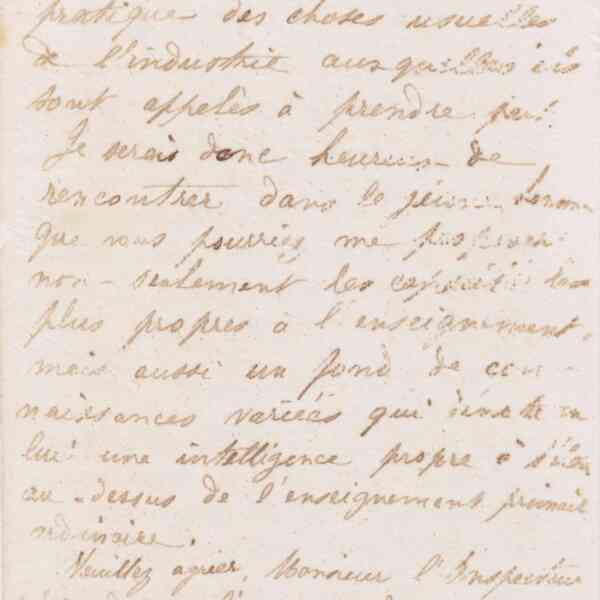 pratique des choses usuelles
de l'industrie auxquelles ils
sont appelés à prendre part.
Je serais donc heureux de
rencontrer dans le jeune homme
que vous pourriez me proposer
non-seulement les capacités les
plus propres à l'enseignement,
mais aussi un fond de con-
naissances variées qui dénote en
lui une intelligence propre à s'élever
au-dessus de l'enseignement primaire
ordinaire.
Veuillez agréer, Monsieur l'Inspecteur